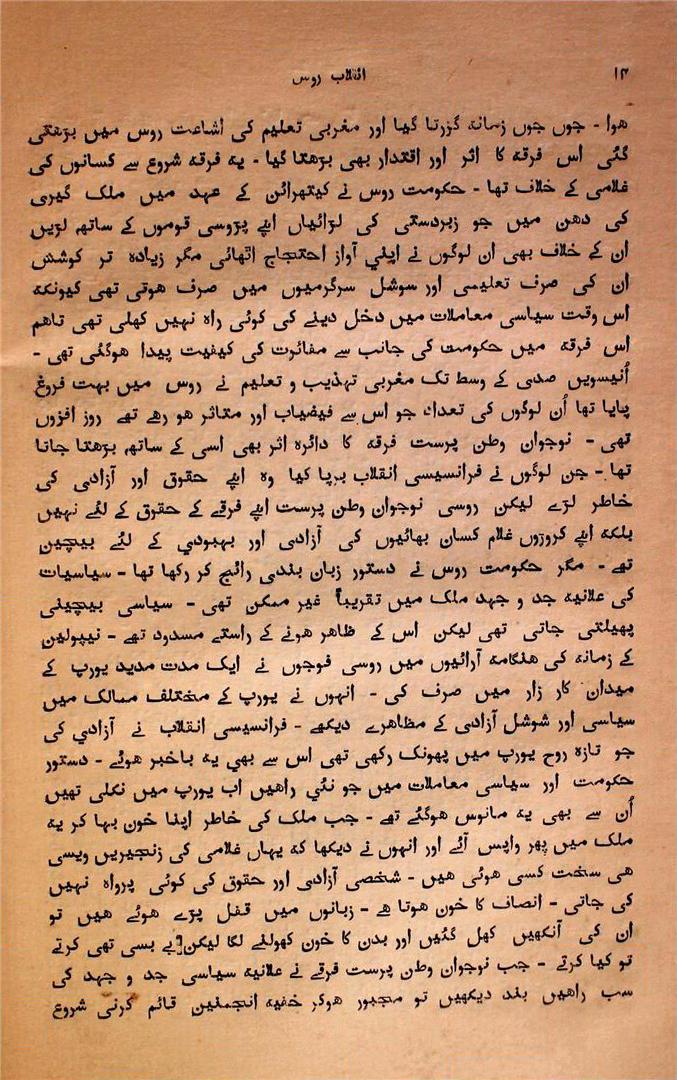 ۱۴
انقلاب روس
ہوا - جوں جوں زمانہ گزرتا گیا اور مغربی تعلیم کی اشاعت روس میں بڑھتی
گئی اس فرقہ کا اثر اور اقتدار بھی بڑھتا گیا - یہ فرقہ شروع سے کسانوں کی
غلامی کے خلاف تھا - حکومت روس نے کیتھرائن کے عہد میں ملک گیری
کی دھن میں جو زبردستی کی لڑائیاں اپنے پڑوسی قوموں کے ساتھ لڑیں
ان کے خلاف بھی ان لوگوں نے اپنی آواز احتجاج اٹھائی مگر زیادہ تر کوشش
ان کی صرف تعلیمی اور سوشل سرگرمیوں میں صرف ہوتی تھی کیونکہ
اس وقت سیاسی معاملات میں دخل دینے کی کوئی راہ نہیں کھلی تھی تاہم
اس فرقہ میں حکومت کی جانب سے مغائرت کی کیفیت پیدا ہوگئی تھی -
اُنیسویں صدی کے وسط تک مغربی تہذیب و تعلیم نے روس میں بہت فروغ
پایا تھا اُن لوگوں کی تعداد جو اس سے فیضیاب اور متاثر ہو رہے تھے روز افزوں
تھی - نوجوان وطن پرست فرقہ کا دائرہ اثر بھی اسی کے ساتھ بڑھتا جاتا
تھا - جن لوگوں نے فرانسیسی انقلاب برپا کیا وہ اپنے حقوق اور آزادی کی
خاطر لڑے لیکن روسی نوجوان وطن پرست اپنے فرقے کے حقوق کے لئے نہیں
بلکہ اپنے کروڑوں غلام کسان بھائیوں کی آزادی اور بہبودی کے لئے بیچین
تھے - مگر حکومت روس نے دستور زبان بندی رائج کر رکھا تھا - سیاسیات
کی علانیہ جد و جہد ملک میں تقریباً غیر ممکن تھی - سیاسی بیچینی
پھیلتی جاتی تھی لیکن اس کے ظاہر ہونے کے راستے مسدود تھے - نیپولین
کے زمانہ کی ہنگامہ آرائیوں میں روسی فوجوں نے ایک مدت مدید یورپ کے
میدان کار زار میں صرف کی - انہوں نے یورپ کے مختلف ممالک میں
سیاسی اور شوشل آزادی کے مظاہرے دیکھے - فرانسیسی انقلاب نے آزادی کی
جو تازہ روح یورپ میں پھونک رکھی تھی اس سے بھی یہ باخبر ہوئے - دستور
حکومت اور سیاسی معاملات میں جو نئی راہیں اب یورپ میں نکلی تھیں
اُن سے بھی یہ مانوس ہوگئے تھے - جب ملک کی خاطر اپنا خون بہا کر یہ
ملک میں پھر واپس آئے اور انہوں نے دیکھا کہ یہاں غلامی کی زنجیریں ویسی
ہی سخت کسی ہوئی ہیں - شخصی آزادی اور حقوق کی کوئی پرواہ نہیں
کی جاتی - انصاف کا خون ہوتا ہے - زبانوں میں قفل پڑے ہوئے ہیں تو
ان کی آنکھیں کھل گئیں اور بدن کا خون کھولنے لگا لیکن بے بسی تھی کرتے
تو کیا کرتے - جب نوجوان وطن پرست فرقے نے علانیہ سیاسی جد و جہد کی
سب راہیں بند دیکھیں تو مجبور ہوکر خفیہ انجمنیں قائم کرنی شروع